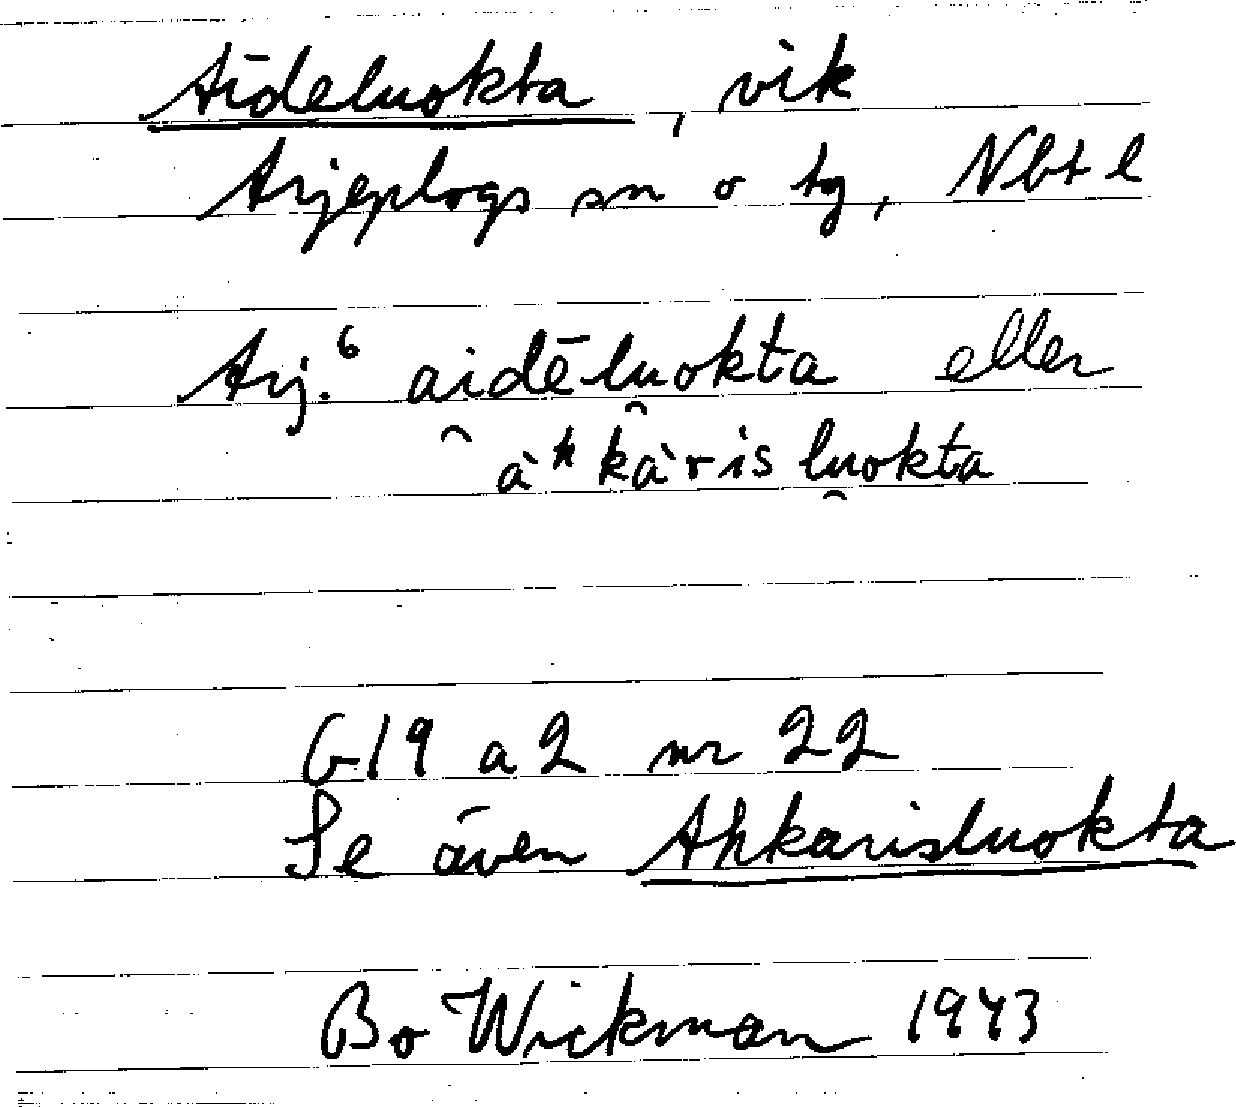 Aideluokta, vik
Arjeplogs sn o tg, Nbt l
Arj.⁶ ai̯dēlu̯okta eller
àʰkàrislu̯okta
G19 a2 nr 22
Se även Ahkarisluokta
Bo Wickman 1943